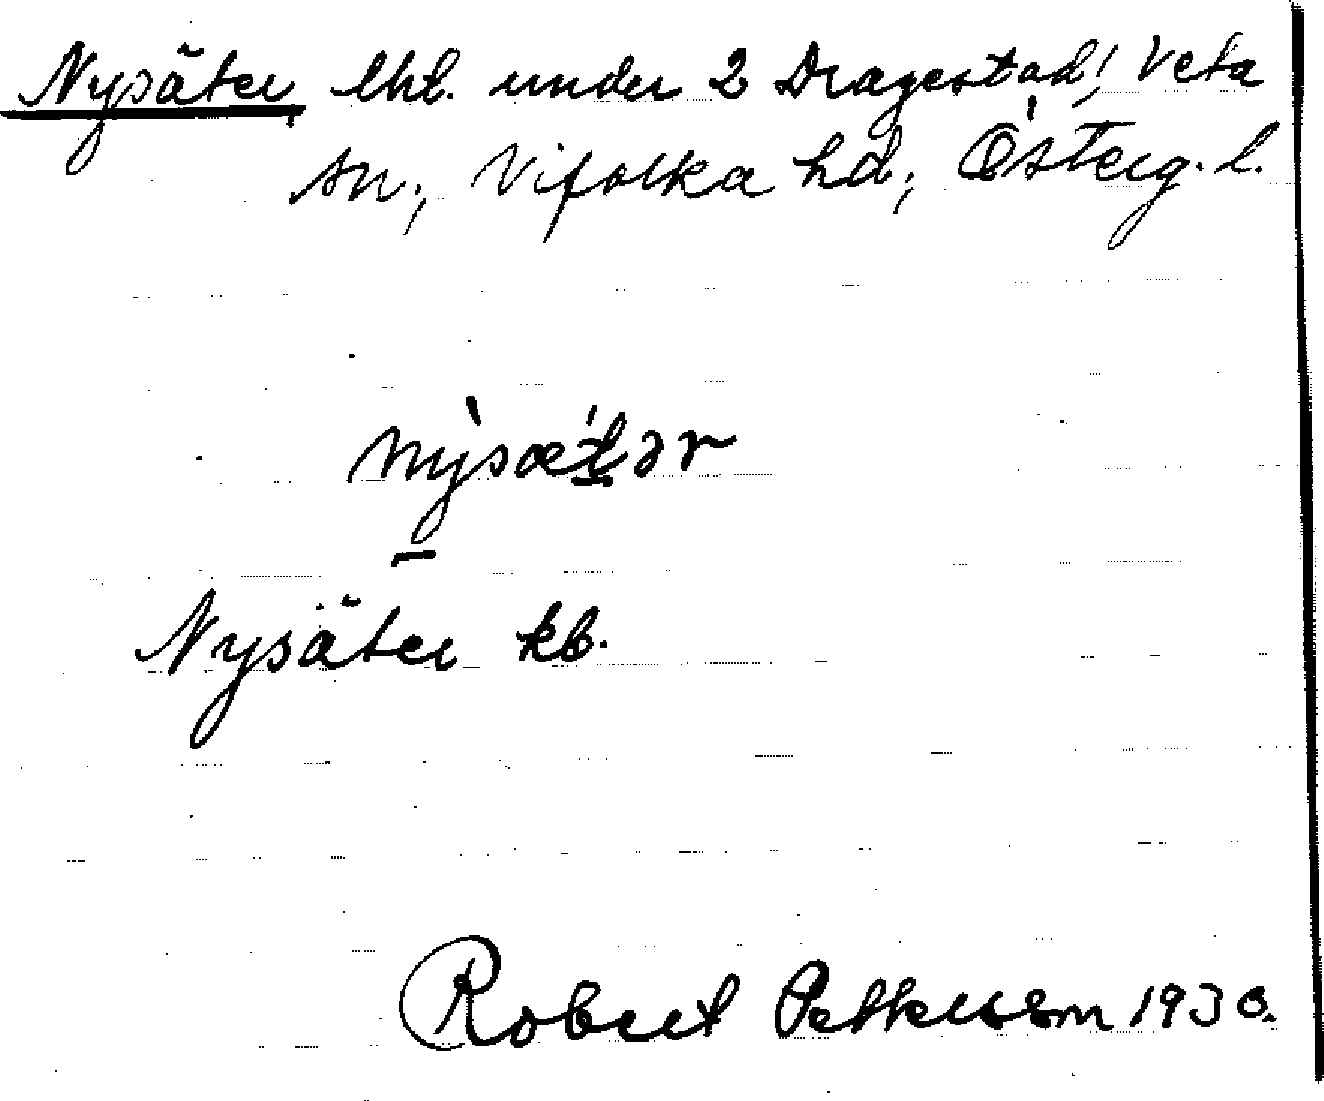 Nysäter, lht. under 2 Dragestad, Veta
sn, Vifolka hd, Österg. l.
nỳ̱sæ̀ṯər
Nysäter kb.
Robert Pettersson 1930.